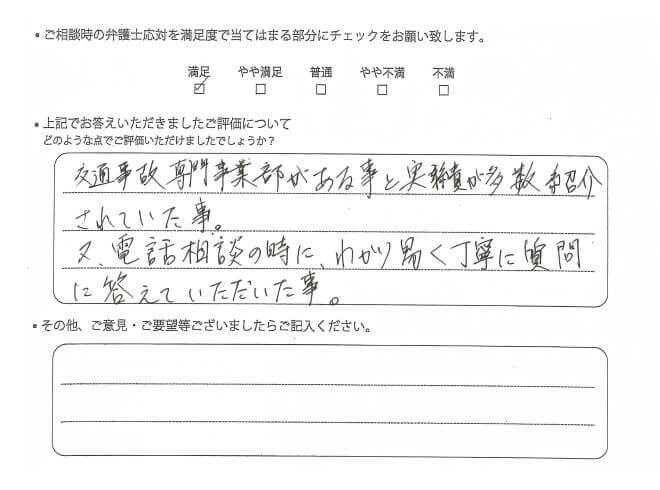 • ご相談時の弁護士応対を満足度で当てはまる部分にチェックをお願い致します。
満足 やや満足 普通 やや不満 不満
• 上記でお答えいただきましたご評価について
どのような点でご評価いただけましたでしょうか？
交通事故専門事業部がある事と実績が多数紹介
されていた事。
又、電話相談の時に、わかり易く丁寧に質問
に答えていただいた事。
• その他、ご意見・ご要望等ございましたらご記入ください。